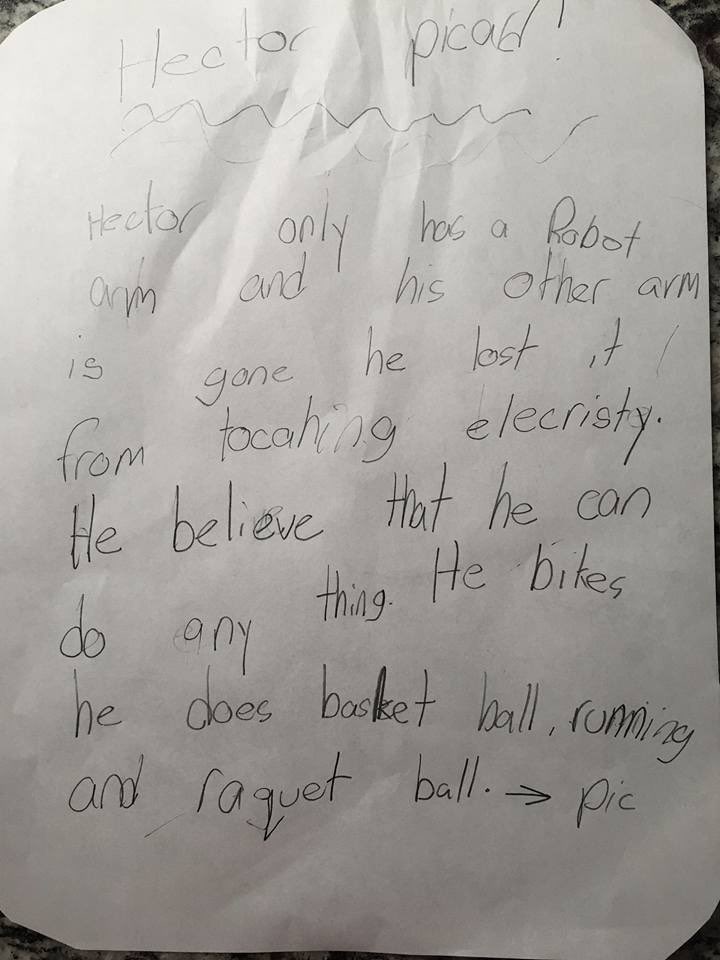 Hector picad!
Hector only has a Robot
arm and his other arm
is gone he lost it
from tocahing elecristy.
He believe that he can
do any thing. He bikes
he does basket ball, running
and raquet ball. → pic